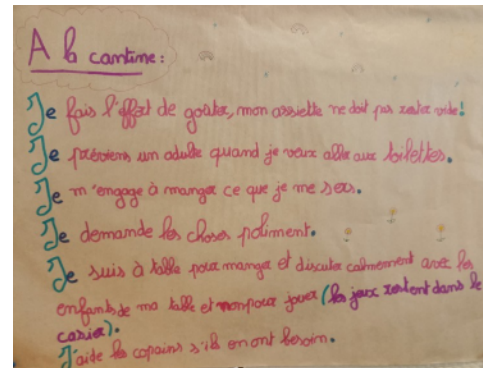 A la cantine :
Je fais l'effort de goûter, mon assiette ne doit pas rester vide !
Je préviens un adulte quand je veux aller aux toilettes.
Je m'engage à manger ce que je me sers.
Je demande les choses poliment.
Je suis à table pour manger et discuter calmement avec les
enfants de ma table et non pour jouer (les jeux restent dans le
casier).
J'aide les copains s'ils en ont besoin.